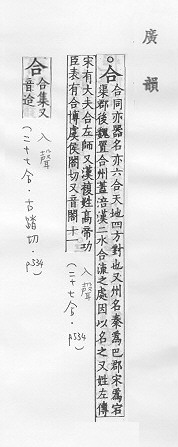 廣韻
合 合同亦器名亦六合天地四方對也又州名秦為巴郡宋為宕
渠郡後魏置合州蓋涪漢二水合流之處因以名之又姓左傳
宋有大夫合左師又漢複姓高帝功
臣表有合博虞侯閤切又音閤十一
入聲
(二十七合.p534)
合 合集又
音迨
入聲
(二十七合.古踏切.p534)